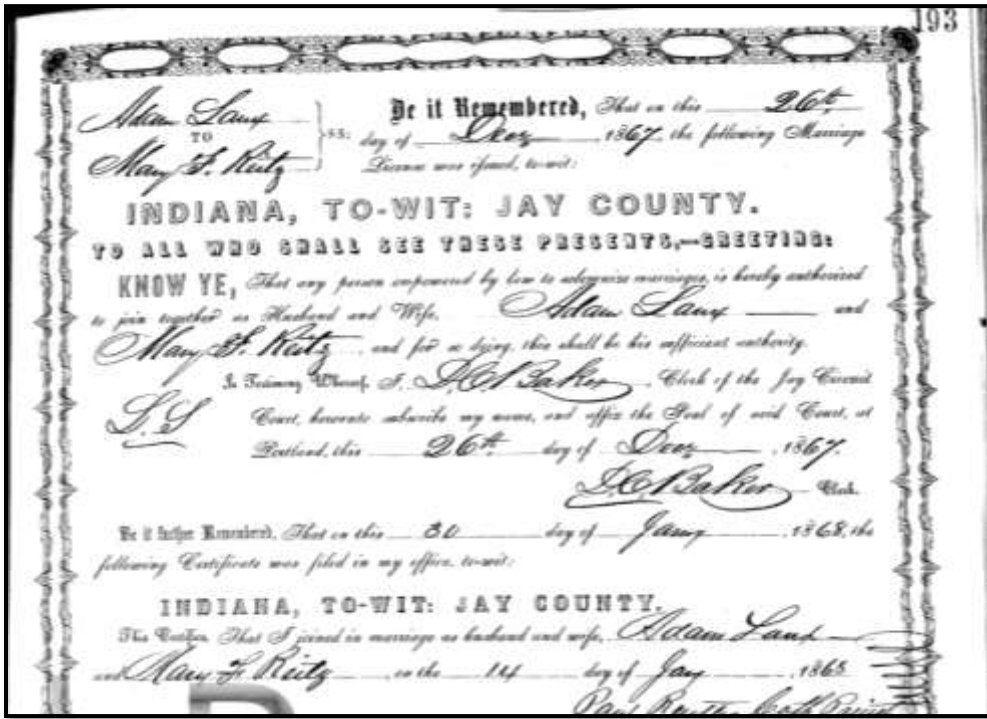 193
Adam Laux
TO
Mary F. Reitz
SS:
Be it Remembered, That on this 26th
day of Decr, 1867, the following Marriage
License was issued, to-wit:
INDIANA, TO-WIT: JAY COUNTY.
TO ALL WHO SHALL SEE THESE PRESENTS,—GREETING:
KNOW YE, That any person empowered by law to solemnize marriages, is hereby authorized
to join together as Husband and Wife, Adam Laux and
Mary F. Reitz, and for so doing, this shall be his sufficient authority.
In Testimony Whereof, I, Baker, Clerk of the Jay Circuit
L. S
Court, hereunto subscribe my name, and affix the Seal of said Court, at
Portland, this 26th day of Decr, 1867.
Baker Clerk.
Be it further Remembered, That on this 30 day of Jany, 1868, the
following Certificate was filed in my office, to-wit:
INDIANA, TO-WIT: JAY COUNTY.
This Certifies, That I joined in marriage as husband and wife, Adam Laux
and Mary F. Reitz, on the 14 day of Jay, 1868